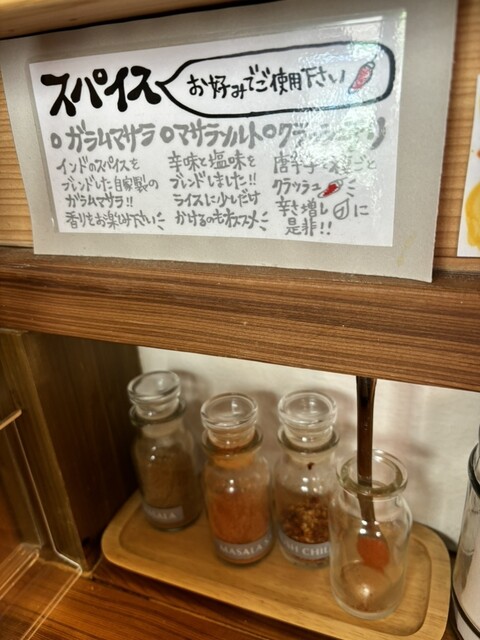 スパイス お好みでご使用下さい
ガラムマサラ
インドのスパイスを
ブレンドした自家製の
ガラムマサラ!!
香りをお楽しみ下さい
マサラソルト
辛味と塩味を
ブレンドしました!!
ライスに少しだけ
かけるのもオススメ
クラッシュチリ
唐辛子を種ごと
クラッシュ
辛さ増し に
是非!!
SALA
MASALA
SH CHILI